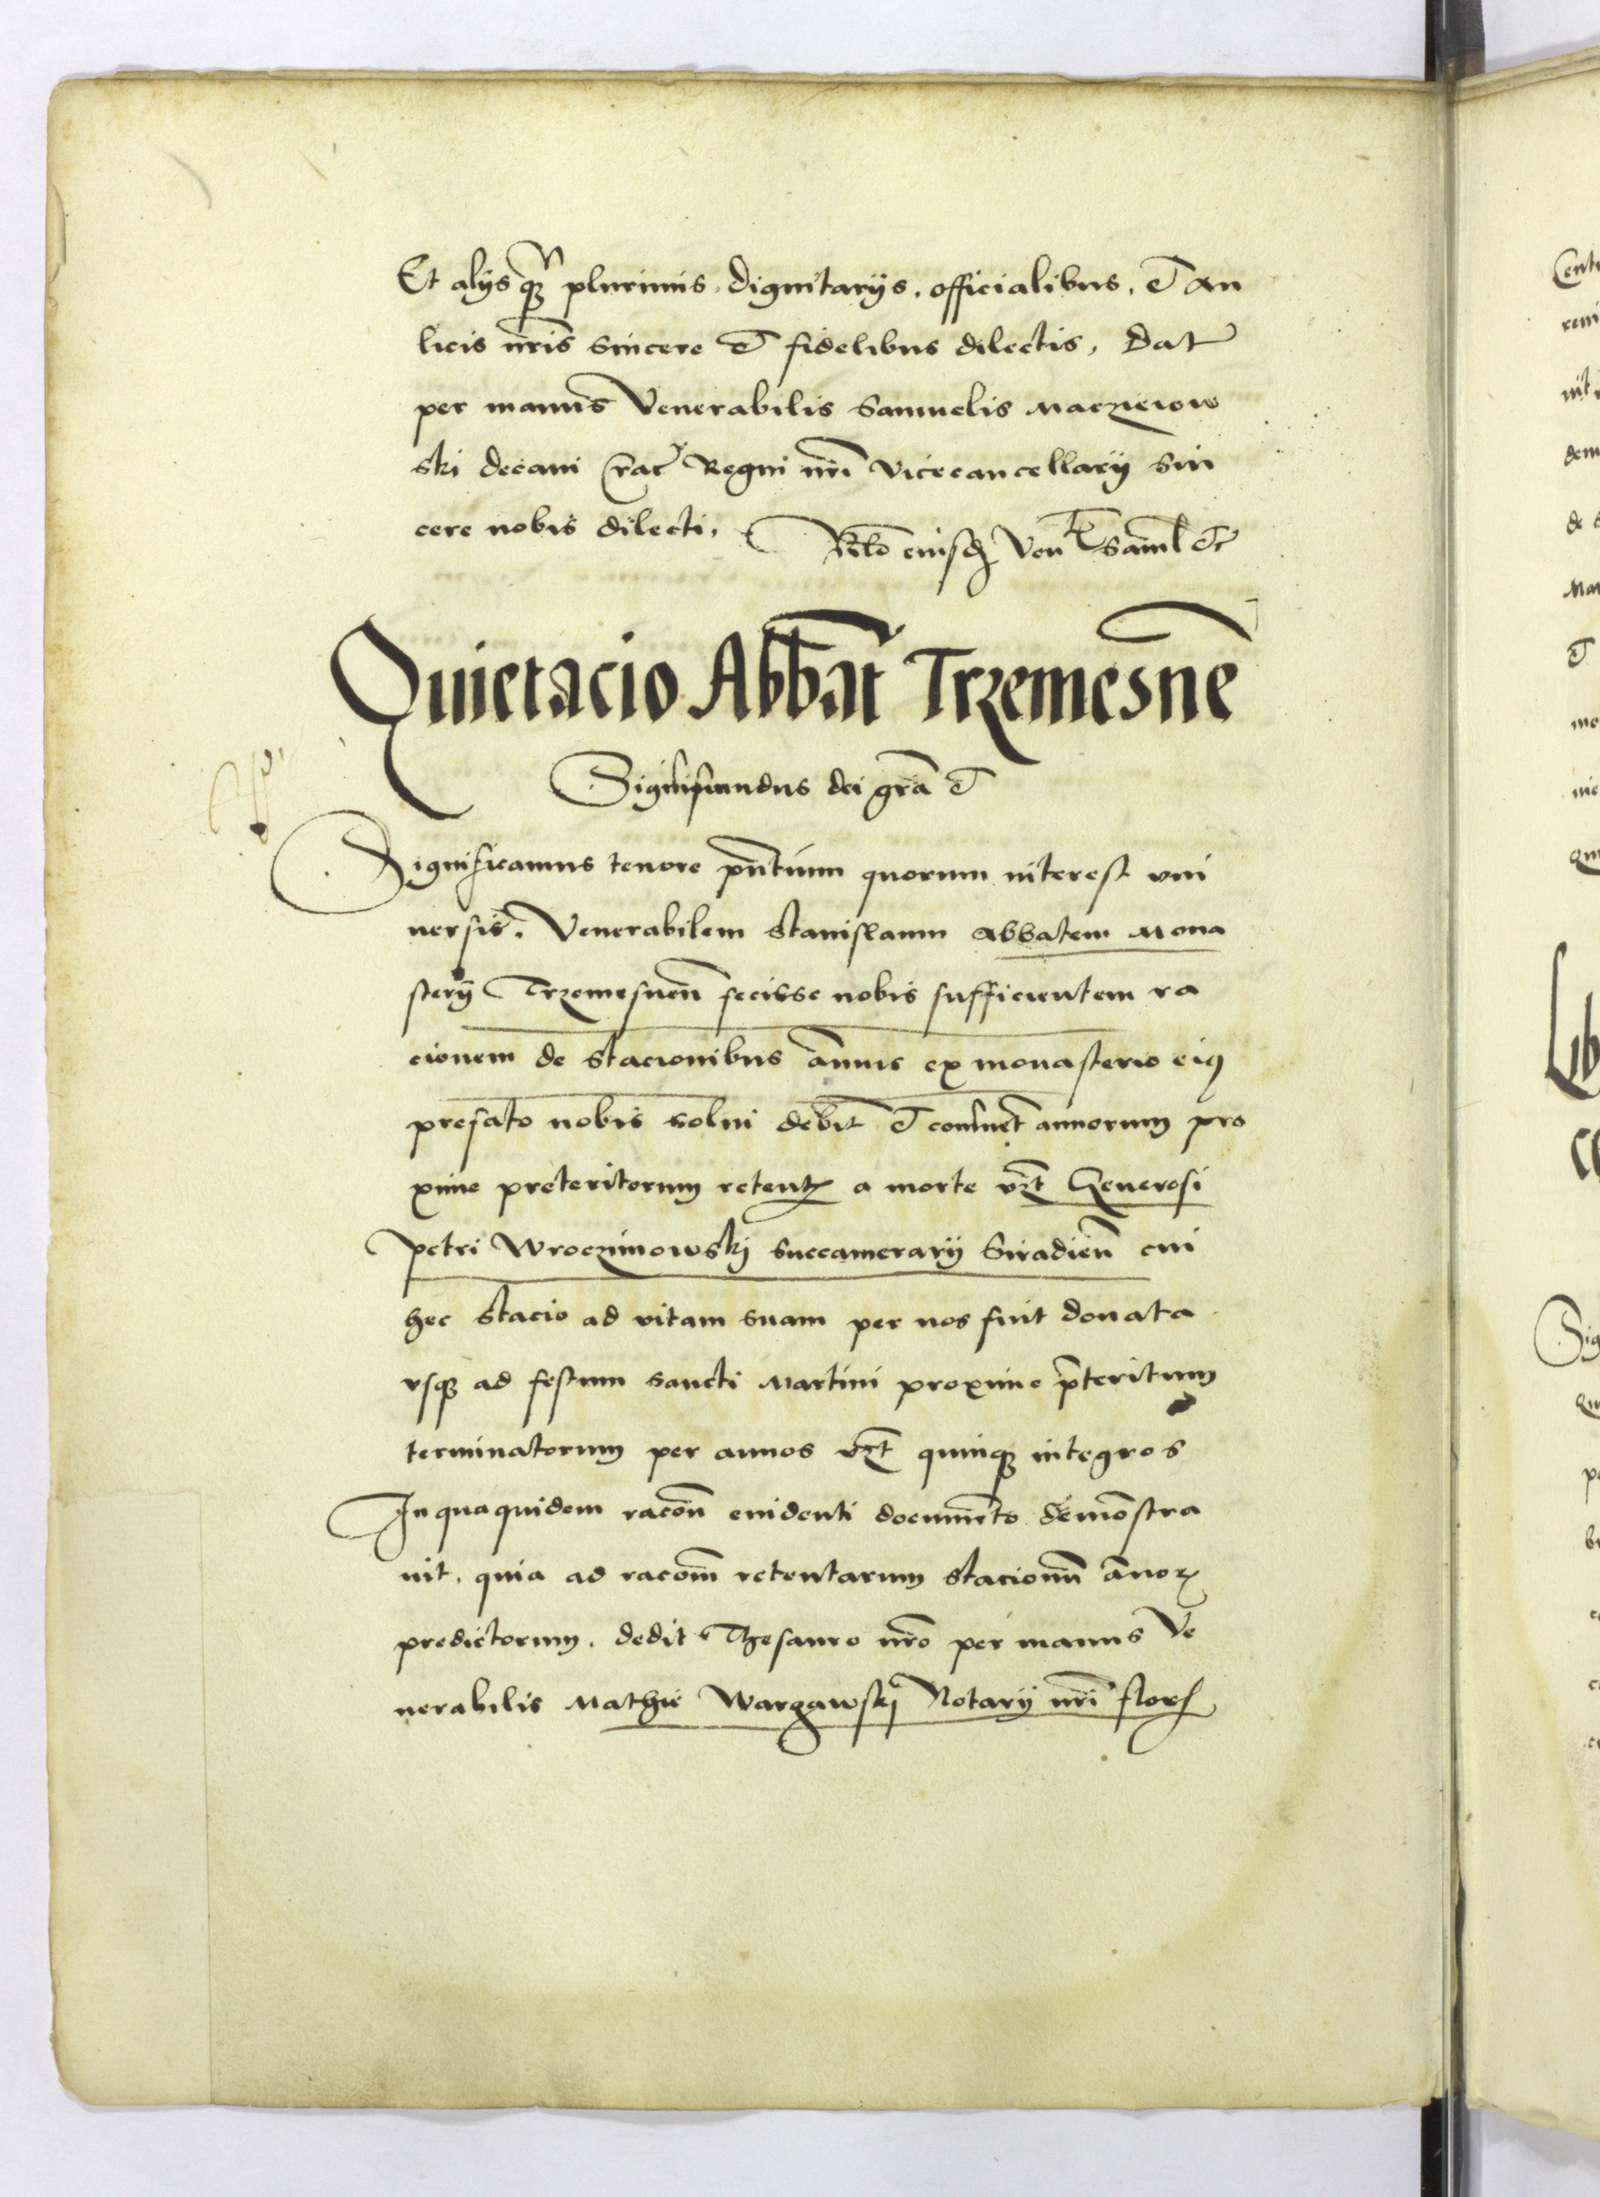 Et alijs qz plurimis. dignitarijs. officialibus. et Au
licis nris sincere et fidelibus dilectis. Dat
per manus Venerabilis Samuelis Maczieiow
ski decani Crac Regni nri vicecancellarij sin
cere nobis dilecti.
Rlo eiusdz Ven Saml etc
Quietacio Abbat Trzemesne
Sigismundus dei gra et
Significamus tenore pntium quorum interest vni
uersis. Venerabilem Stanislaum Abbatem Mona
sterij Trzemesnen fecisse nobis sufficientem ra
cionem de stacionibus annuis ex monasterio eius
prefato nobis solui debit et consuet annorum pro
xime preteritorum retentarum a morte vzt Generosi
Petri Wroczimowskj Succamerarij Siradien cui
hec stacio ad vitam suam per nos fuit donata
vsqz ad festum sancti Martini proxime pteritum
terminatorum per annos vzt quinqz integros
In qua quidem racon euidenti documento demostra
uit. quia ad racom retentarum stacionum anorum
predictorum. dedit Thesauro nro per manus Ve
nerabilis Mathie Wargawskj Notarij nri flor